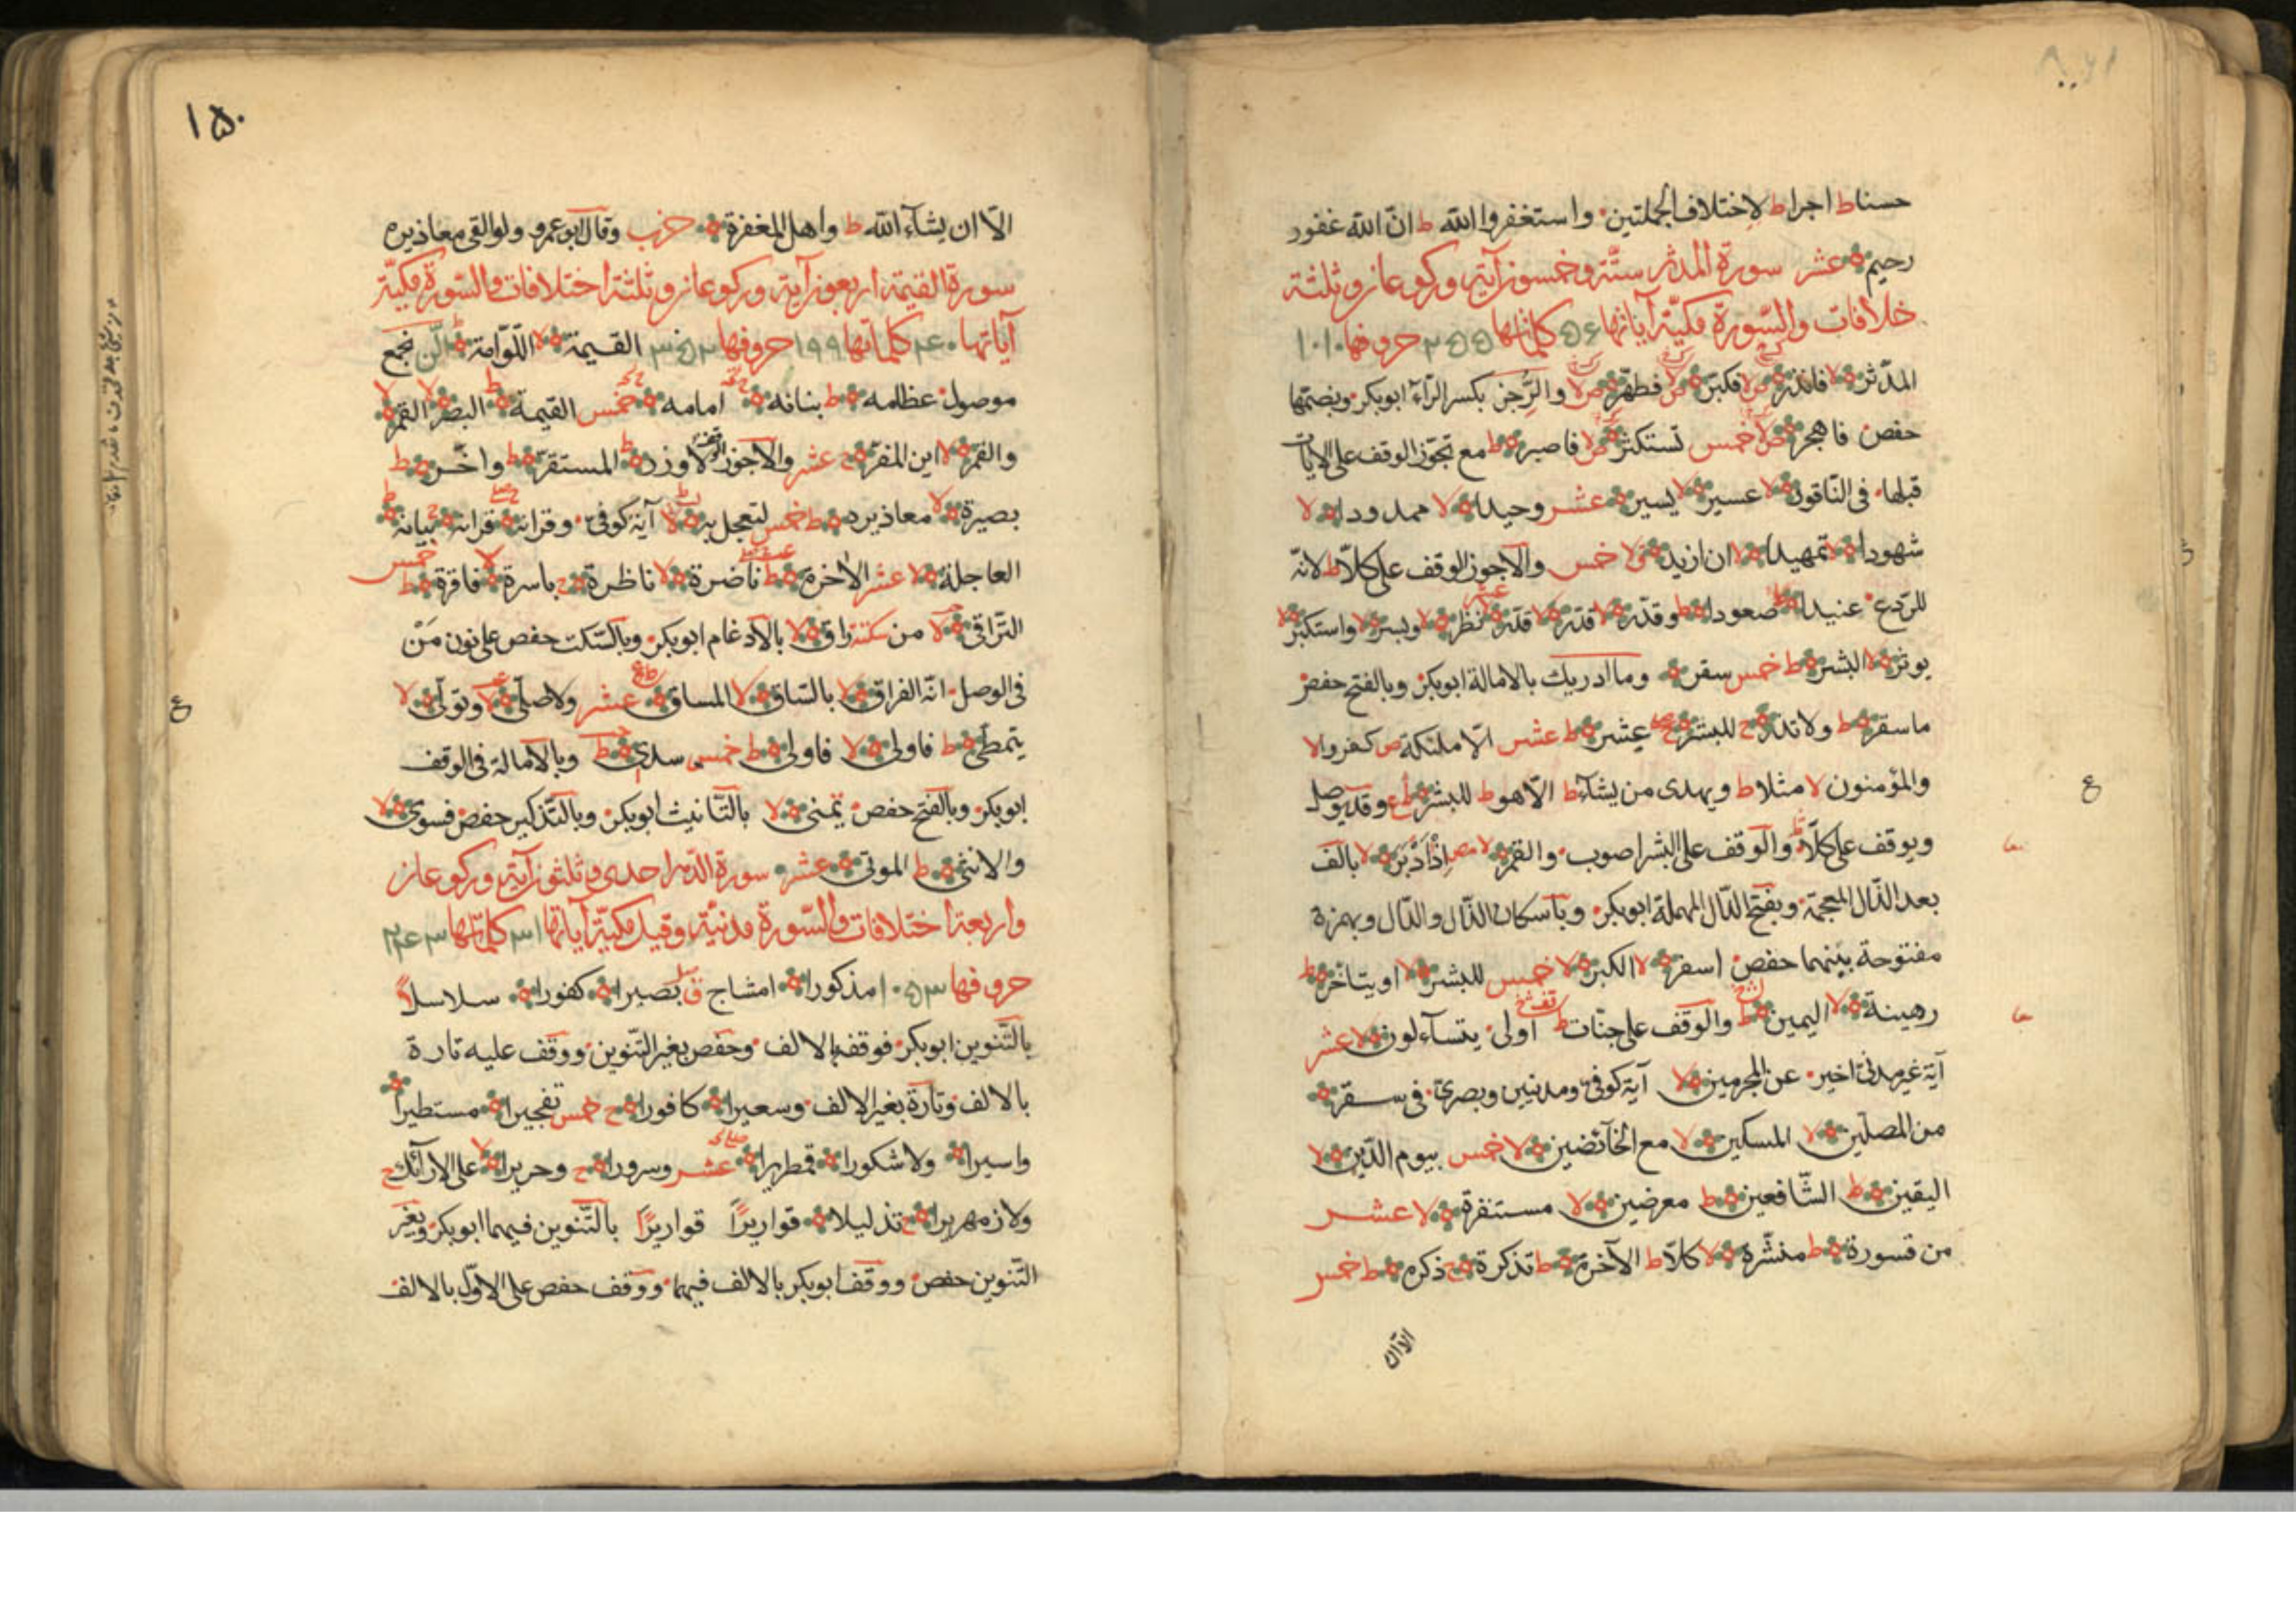 حسنا ط اجرا ط لاختلاف الجملتين واستغفروا الله ط ان الله غفور
رحيم عشر سورة المدثر ستة وخمسون آية وركوعان وثلثة
خلافات والسورة مكية آياتها ۵۶ كلماتها ۲۵۵ حروفها ۱۰۱۰
المدثر لا فانذر ص لا فكبر ص لا فطهر ص لا والرجز بكسر الراء ابوبكر وبضمها
حفص فاهجر ص لا خمس تستكثر ص لا فاصبر ط مع تجوز الوقف على الايات
قبلها فى الناقور لا عسير لا يسير عشر وحيدا لا ممدودا لا
شهودا لا تمهيدا لا ان ازيد لا خمس والاجوز الوقف على كلا ط لانه
للردع عنيدا ط صعودا ط وقدر لا قدر لا قدر لا نظر لا وبسر لا واستكبر لا
يوثر لا البشر ط خمس سقر وما ادريك بالامالة ابوبكر وبالفتح حفص
ما سقر ط ولا تذر ج للبشر ج عشر ط عشر الا ملئكة ص كفروا لا
والمؤمنون لا مثلا ط ويهدى من يشآء ط الا هو ط للبشر ط ع وقد يوصل
ويوقف على كلا والوقف على البشر اصوب والقمر لا اذا دبر لا بالف
بعد الذال المعجمة وبفتح الدال المهملة ابوبكر وباسكان الذال والدال وبهمزة
مفتوحة بينهما حفص اسفر لا الكبر لا خمس للبشر لا او يتاخر ط
رهينة لا اليمين ط والوقف على جنات ط اولى يتسآءلون لا عشر
آية غير مدنى اخير عن المجرمين لا آية كوفى ومدنيين وبصرى فى سقر
من المصلين لا المسكين لا مع الخآئضين لا خمس بيوم الدين لا
اليقين ط الشافعين ط معرضين لا مستنفرة لا عشر
من قسورة ط منشرة لا كلا ط الآخرة ط تذكرة ج ذكره ط خمس
الا ان
۱۵۰
الا ان يشآء الله ط واهل المغفرة حزب وقال ابو عمرو ولو القى معاذيره
سورة القيمة اربعون آية وركوعان وثلثة اختلافات والسورة مكية
آياتها ۴۰ كلماتها ۱۹۹ حروفها ۳۵۲ القيمة لا اللوامة ط الن نجمع
موصول عظامه ط بنانه امامه ج خمس القيمة ط البصر لا القمر لا
والقمر لا اين المفر ج عشر والاجوز لا وزر ط المستقر ط واخر ط
بصيرة لا معاذيره ط خمس لتعجل به ط لا آية كوفى وقرانه ج قرانه ج بيانه ط
العاجلة لا عشر الاخرة ط ناضرة لا ناظرة ج باسرة لا فاقرة ط خمس
التراقى لا من سكتة راق لا بالادغام ابوبكر وبالسكت حفص على نون من
فى الوصل انه الفراق لا بالساق لا المساق ط ع عشر ولا صلى لا وتولى لا
يتمطى ط فاولى لا فاولى ط خمس سدى ط وبالامالة فى الوقف
ابوبكر وبالفتح حفص تمنى لا بالتانيث ابوبكر وبالتذكير حفص فسوى لا
والانثى ط الموتى عشر سورة الدهر احدى وثلثون آية وركوعان
واربعة اختلافات والسورة مدنية وقيل مكية آياتها ۳۱ كلماتها ۲۴۳
حروفها ۱۰۵۳ مذكورا امشاج ق بصيرا كفورا سلاسلا
بالتنوين ابوبكر فوقفه بالالف وحفص بغير التنوين ووقف عليه تارة
بالالف وتارة بغير الالف وسعيرا كافورا ج خمس تفجيرا مستطيرا
واسيرا ولا شكورا قمطريرا عشر وسرورا ج وحريرا لا على الارآئك ج
ولا زمهريرا ج تذليلا قواريرا قواريرا بالتنوين فيهما ابوبكر وبغير
التنوين حفص ووقف ابوبكر بالالف فيهما ووقف حفص على الاول بالالف
ع
ع